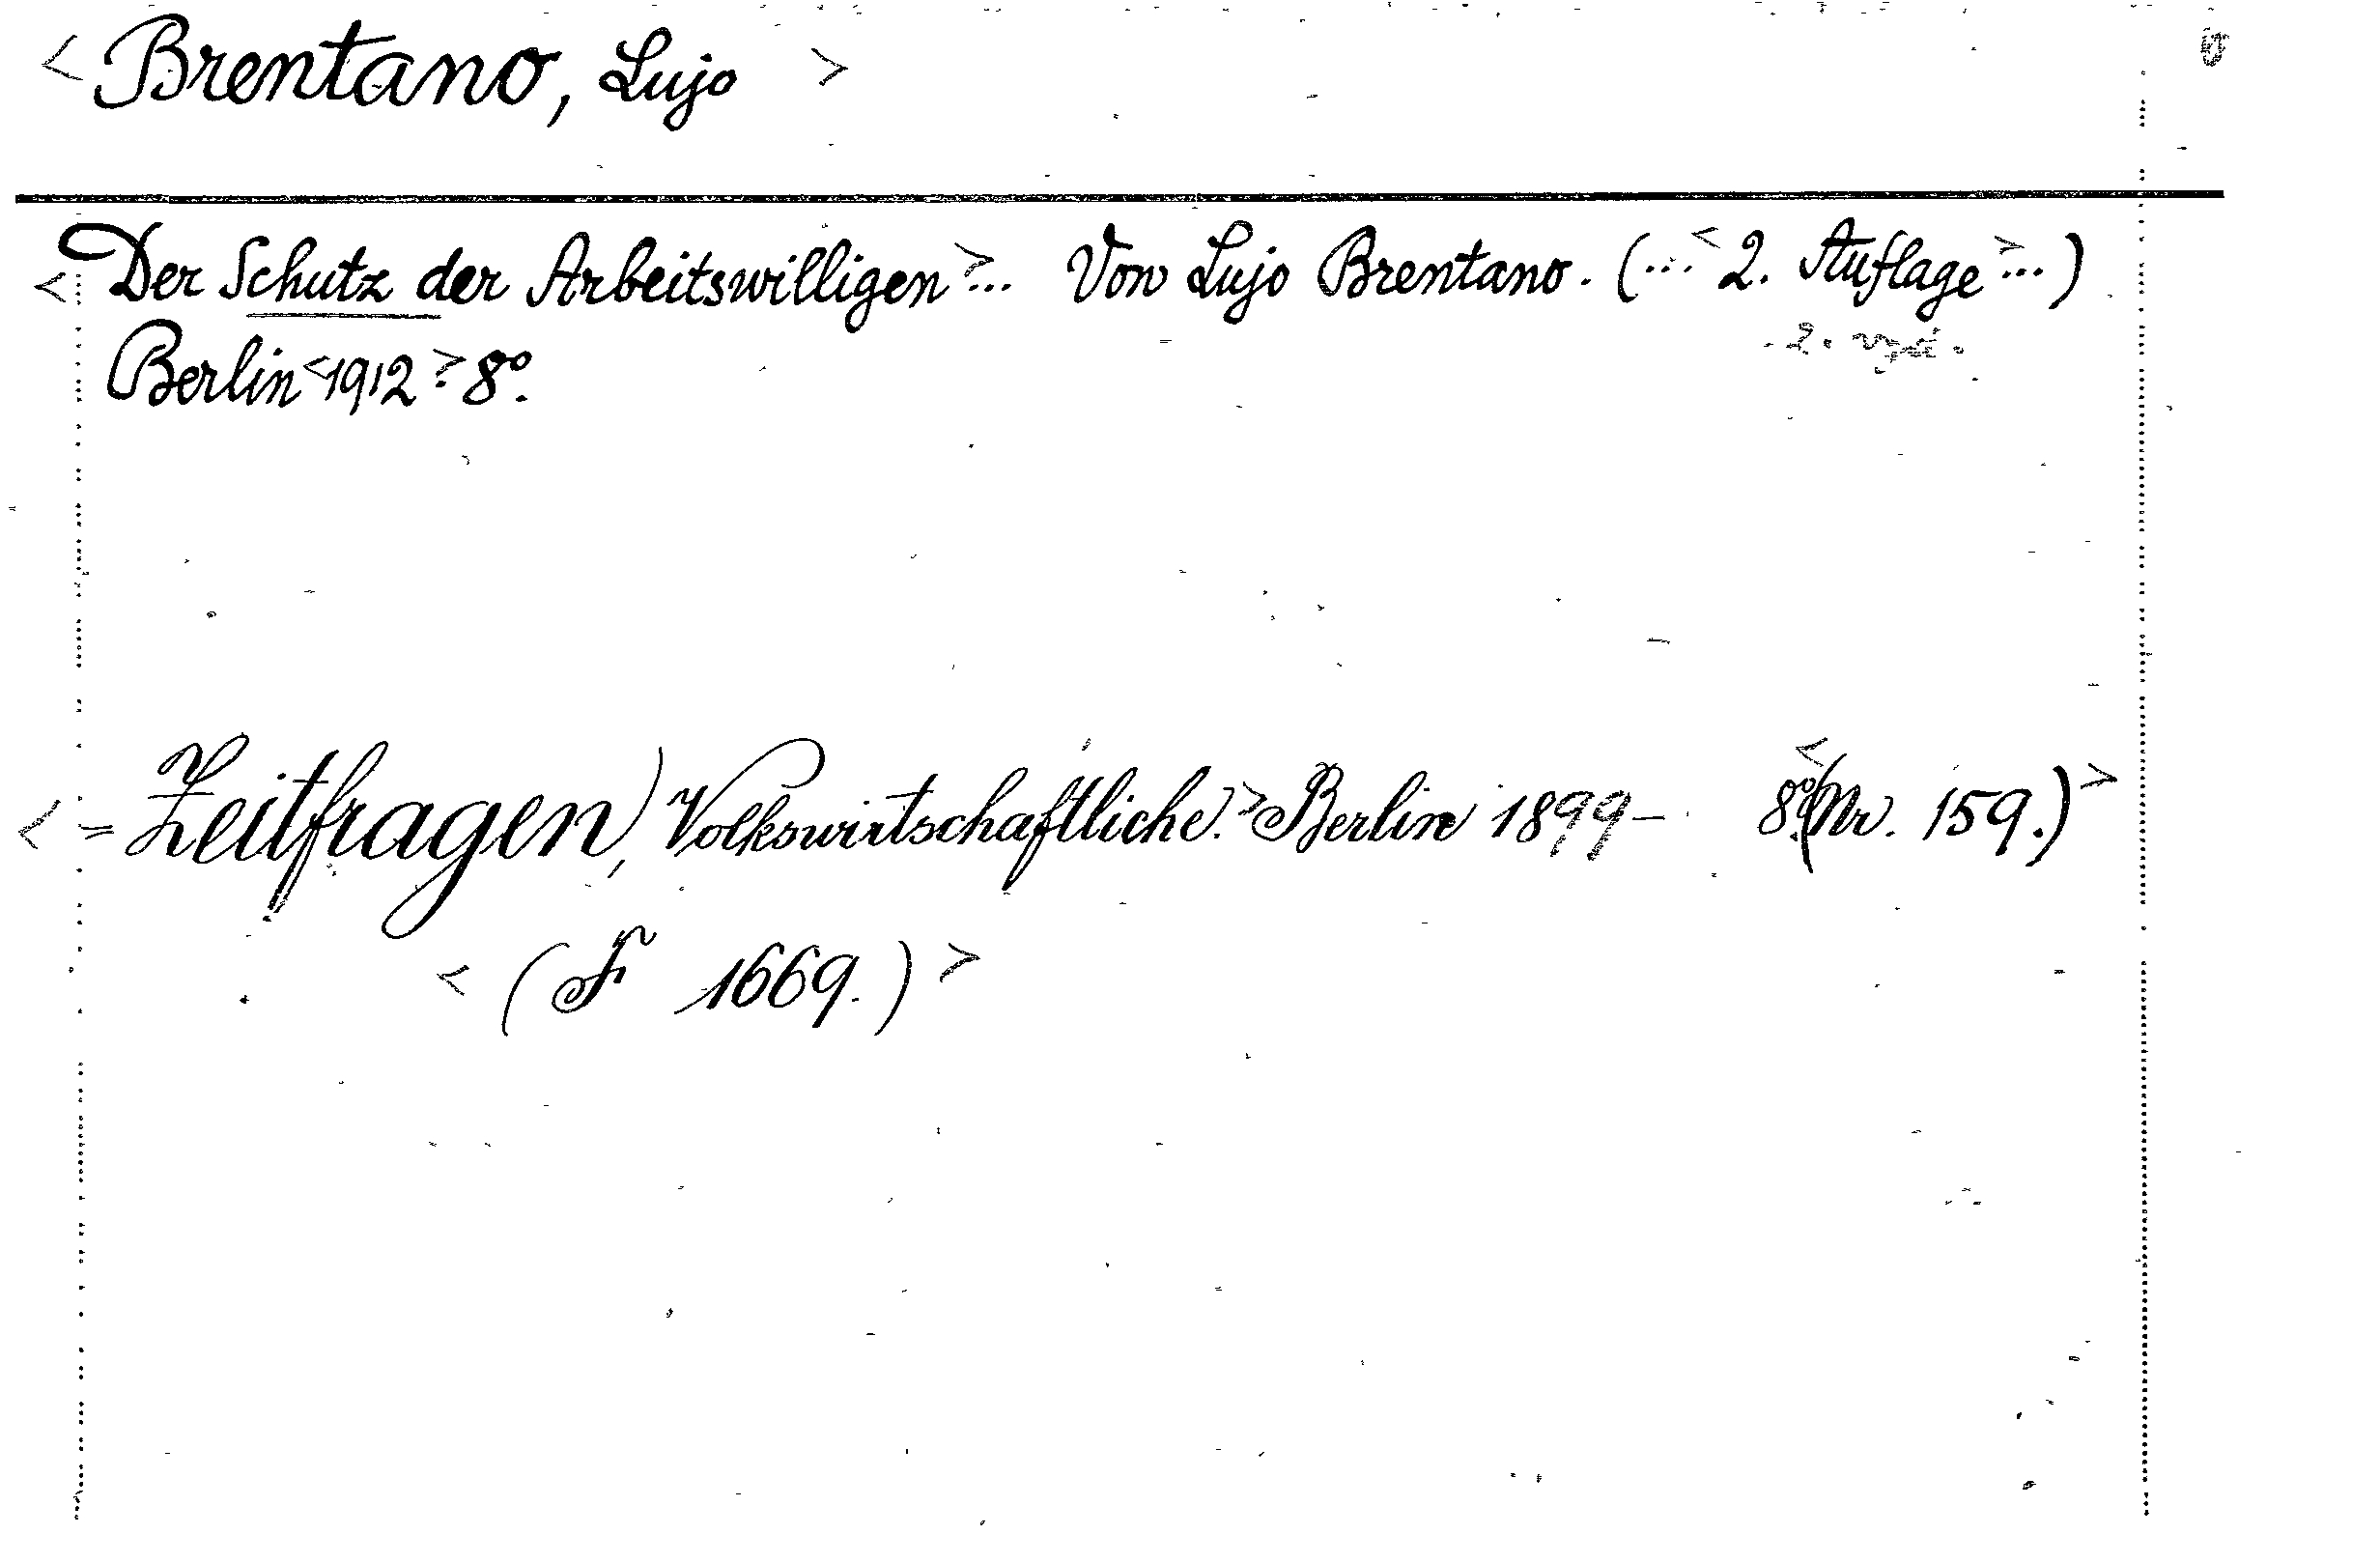 < Brentano, Lujo >
< Der Schutz der Arbeitswilligen >... Von Lujo Brentano. (... < 2. Auflage > ...)
2. vyd.
Berlin < 1912 > 8°.
< = Zeitfragen, Volkswirtschaftliche. > Berlin 1899– 8°. < (Nr. 159.) >
< (F 1669.) >